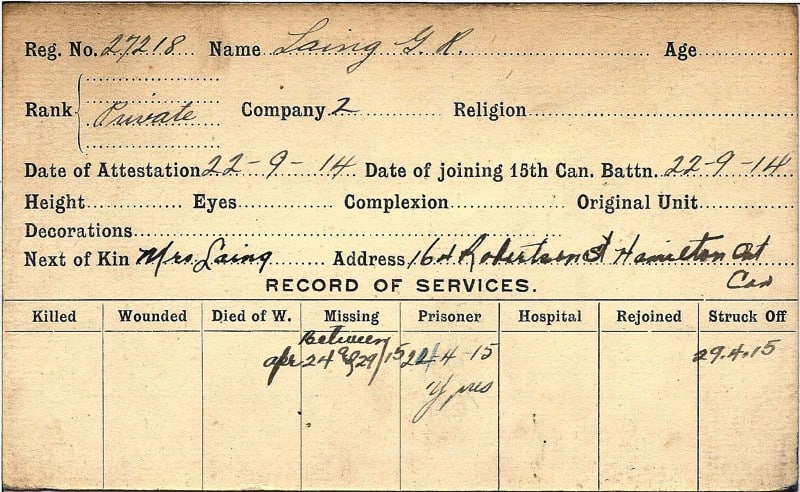 Reg. No. 27218 Name Laing G. R. Age
Rank Private Company 2 Religion
Date of Attestation 22-9-14 Date of joining 15th Can. Battn. 22-9-14
Height Eyes Complexion Original Unit
Decorations
Next of Kin Mrs. Laing Address 164 Robertson St Hamilton Ont
Can
RECORD OF SERVICES.
Killed Wounded Died of W. Missing Prisoner Hospital Rejoined Struck Off
Between
apr 24 & 29/15 24-4-15 29.4.15
Ypres